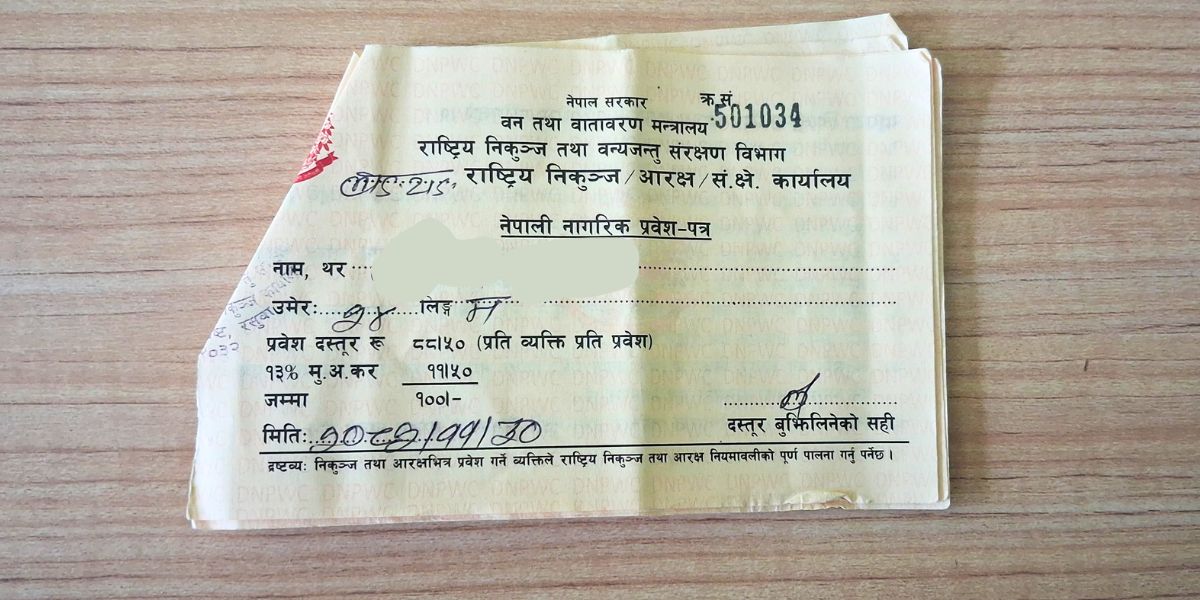 नेपाल सरकार
क्र.सं. 501034
वन तथा वातावरण मन्त्रालय
राष्ट्रिय निकुञ्ज तथा वन्यजन्तु संरक्षण विभाग
राष्ट्रिय निकुञ्ज/आरक्ष/सं.क्षे. कार्यालय
नेपाली नागरिक प्रवेश-पत्र
नाम, थर
उमेर: २४ लिङ्ग म
प्रवेश दस्तूर रू ८८।५० (प्रति व्यक्ति प्रति प्रवेश)
१३% मु.अ.कर ११।५०
जम्मा १००।-
मिति:
दस्तूर बुझिलिनेको सही
द्रष्टव्य: निकुञ्ज तथा आरक्षभित्र प्रवेश गर्ने व्यक्तिले राष्ट्रिय निकुञ्ज तथा आरक्ष नियमावलीको पूर्ण पालना गर्नु पर्नेछ ।